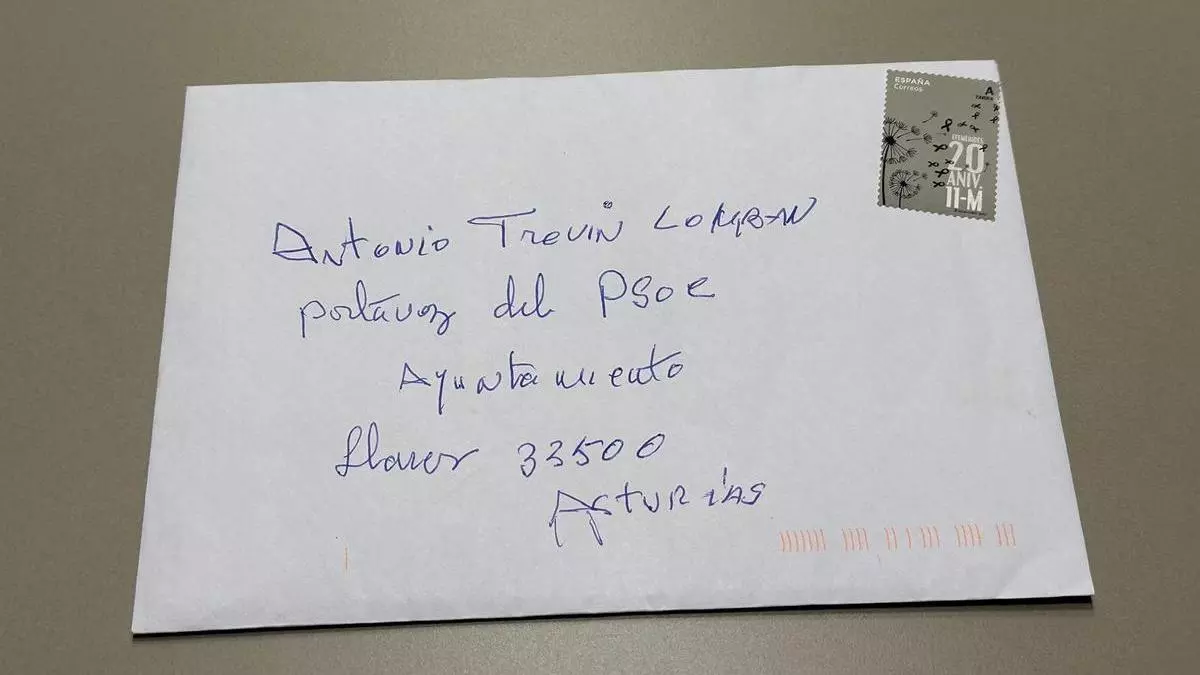 ESPAÑA
Correos
A
TARIFA
EFEMÉRIDES
20
ANIV.
11-M
ANTONIO TREVIN LOMBAN
portavoz del PSOE
Ayuntamiento
Llanes 33500
ASTURIAS